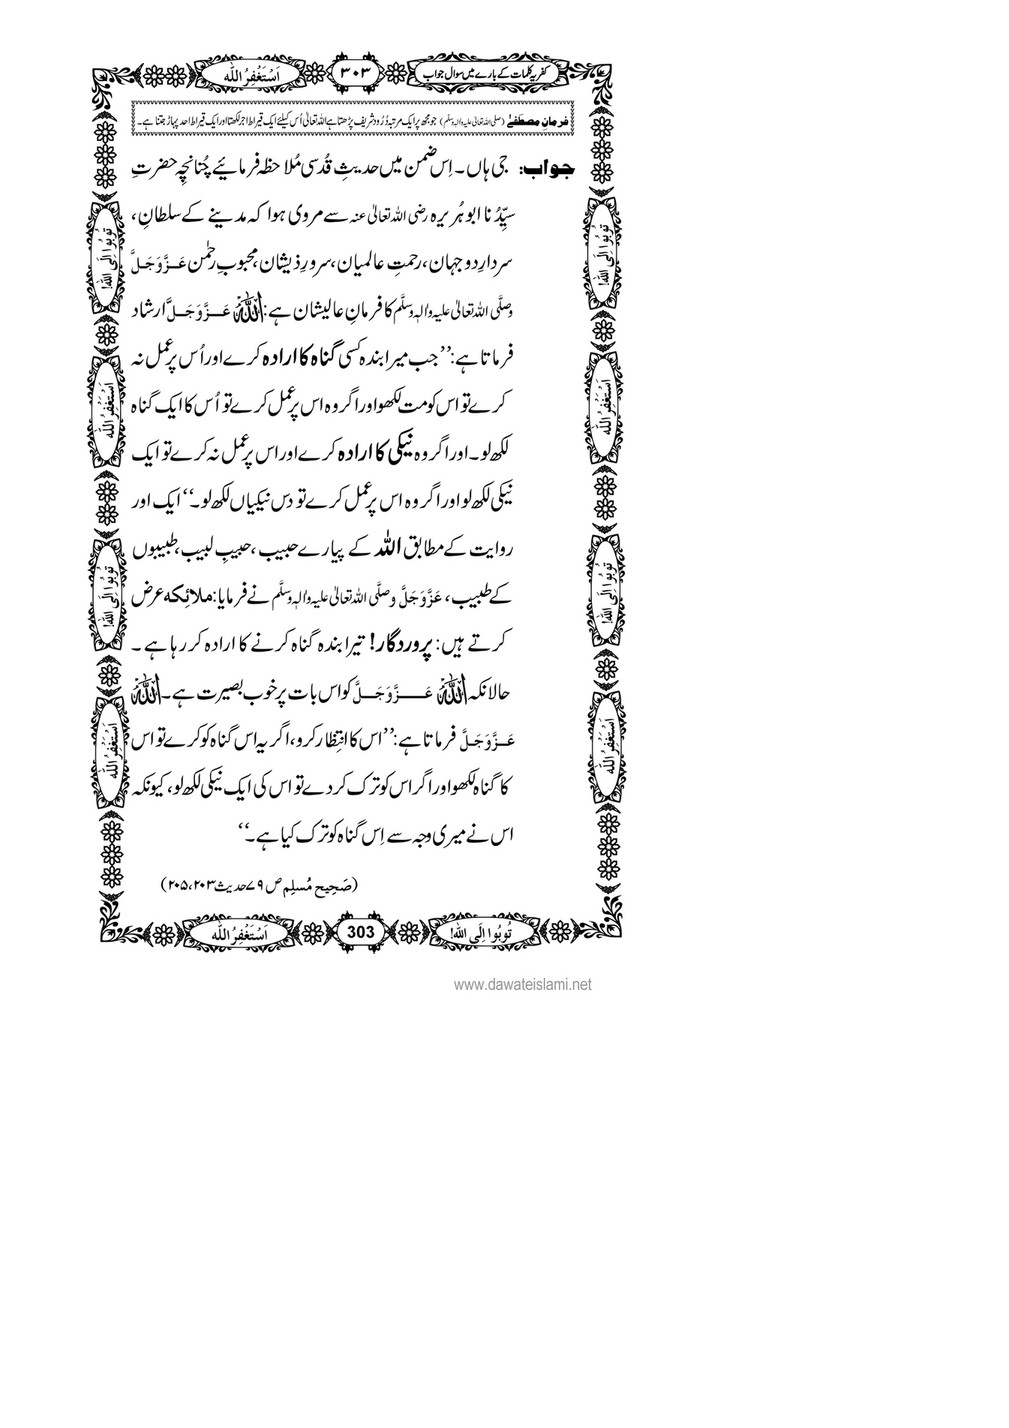 کفریہ کلمات کے بارے میں سوال جواب ۳۰۳ اَسْتَغْفِرُ اللّٰه
فرمانِ مصطَفٰے (صلی اللہ تعالیٰ علیہ والہ وسلم) جو مجھ پر ایک مرتبہ دُرُود شریف پڑھتا ہے اللہ تعالیٰ اُس کیلئے ایک قیراط اجر لکھتا اور ایک قیراط احد پہاڑ جتنا ہے۔
جواب: جی ہاں۔ اِس ضِمن میں حدیثِ قُدسی مُلاحظہ فرمائیے چُنانچِہ حضرتِ
سیِّدُنا ابو ہُریرہ رضی اللہ تعالیٰ عنہ سے مروی ہوا کہ مدینے کے سلطان،
سردارِ دو جہان، رحمتِ عالمیان، سرورِ ذیشان، محبوبِ رحمٰن عَزَّوَجَلَّ
وصلَّی اللہ تعالیٰ علیہ والہٖ وسلَّم کا فرمانِ عالیشان ہے: اللہُ عَزَّوَجَلَّ ارشاد
فرماتا ہے: ’’جب میرا بندہ کسی گناہ کا ارادہ کرے اور اُس پر عمل نہ
کرے تو اس کو مت لکھو اور اگر وہ اس پر عمل کرے تو اُس کا ایک گناہ
لکھ لو۔ اور اگر وہ نیکی کا ارادہ کرے اور اس پر عمل نہ کرے تو ایک
نیکی لکھ لو اور اگر وہ اس پر عمل کرے تو دس نیکیاں لکھ لو۔‘‘ ایک اور
روایت کے مطابق اللہ کے پیارے حبیب ، حبیبِ لبیب، طبیبوں
کے طبیب، عَزَّوَجَلَّ وصلَّی اللہ تعالیٰ علیہ والہٖ وسلَّم نے فرمایا: ملائِکہ عرض
کرتے ہیں: پروردگار! تیرا بندہ گناہ کرنے کا ارادہ کر رہا ہے ۔
حالانکہ اللہُ عَزَّوَجَلَّ کو اس بات پر خوب بصیرت ہے۔ اللہُ
عَزَّوَجَلَّ فرماتا ہے: ’’اس کا انتِظار کرو، اگر یہ اس گناہ کو کرے تو اس
کا گناہ لکھو اور اگر اس کو ترک کر دے تو اس کی ایک نیکی لکھ لو، کیونکہ
اس نے میری وجہ سے اِس گناہ کو ترک کیا ہے۔‘‘
(صَحِیح مُسلِم ص ۷۹ حدیث ۲۰۳، ۲۰۵)
تُوبُوا اِلَی اللّٰه! 303 اَسْتَغْفِرُ اللّٰه
تُوبُوا اِلَی اللّٰه!
اَسْتَغْفِرُ اللّٰه
تُوبُوا اِلَی اللّٰه!
اَسْتَغْفِرُ اللّٰه
تُوبُوا اِلَی اللّٰه!
اَسْتَغْفِرُ اللّٰه
تُوبُوا اِلَی اللّٰه!
اَسْتَغْفِرُ اللّٰه
www.dawateislami.net